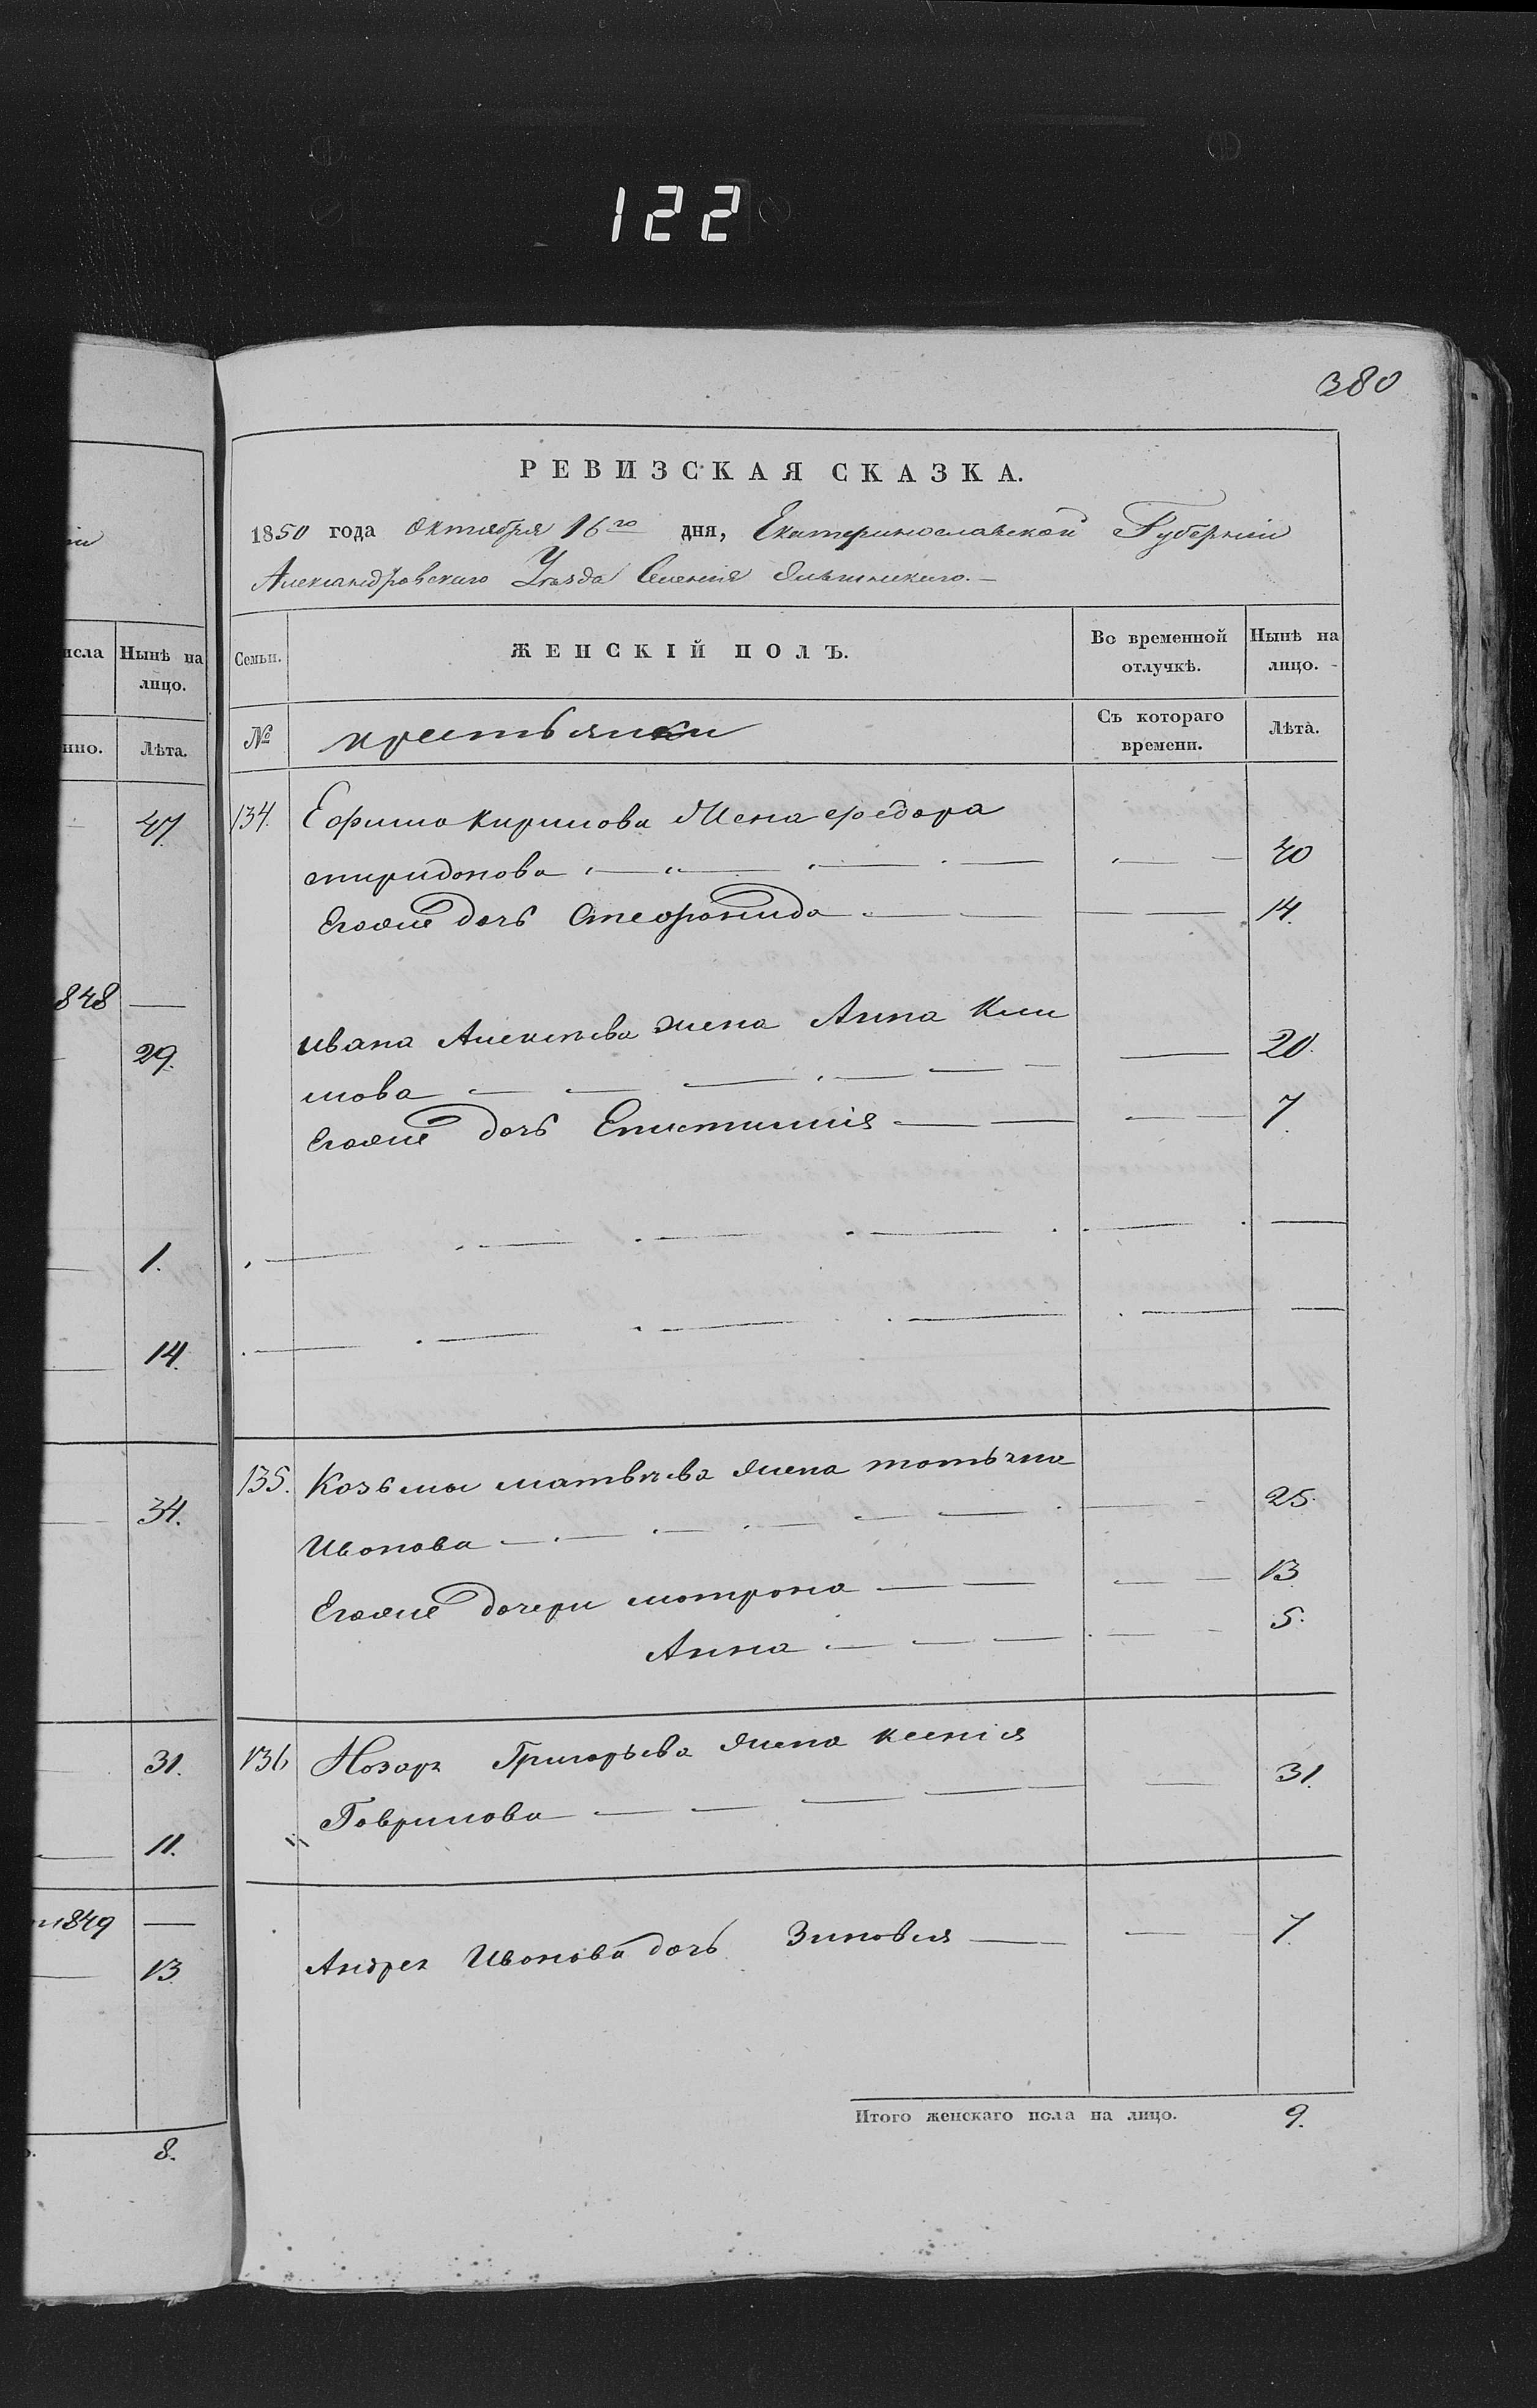 122
380
РЕВИЗСКАЯ СКАЗКА.
1850 года октября 16го дня, Екатеринославской Губерніи
Александровскаго Уезда Селенія
исла Нынѣ на лицо.
нно. Лѣта.
47.
848 —
29.
1.
14.
34.
31.
11.
1849 —
13
8.
Семьи. ЖЕНСКІЙ ПОЛЪ. Во временной отлучкѣ. Нынѣ на лицо.
№ крестьянки Съ котораго времени. Лѣта.
134. Ефима Кирилова Жена федора
спиридонова — — — — 40
Егоже дочь Стефанида — — — 14.
ивана Алексѣева жена Анна Кли
мова — — — — — — 20.
Егоже дочь Епистимія — — — 7.
135. Козьмы матвѣева жена татьяна
Иванова — — — — — 25.
Егоже дочери мотрона — — — 13
Анна — — — — 5.
136 Назара Григорьева жена ксенія
Гаврилова — — — — — 31.
Андрея Иванова дочь Зиновия — — 7.
Итого женскаго пола на лицо. 9.